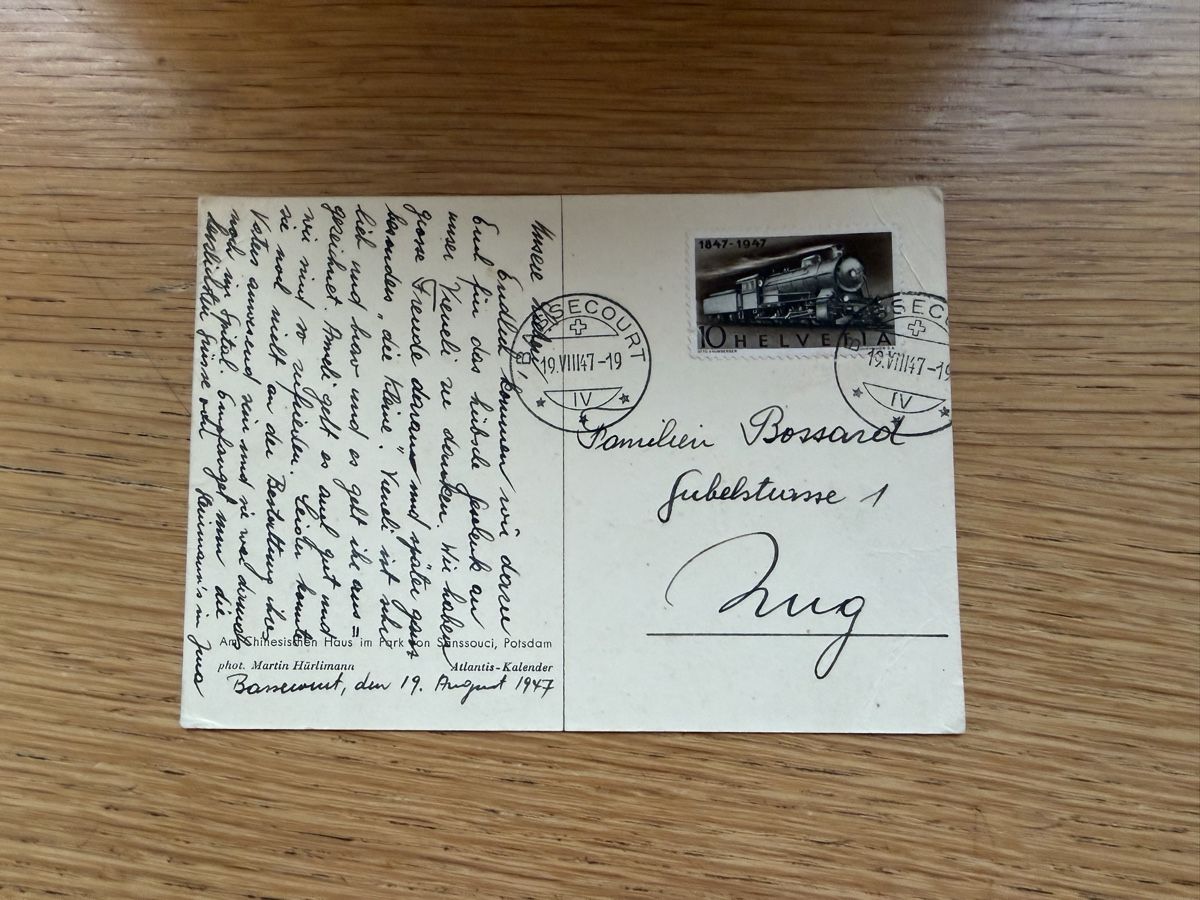 Unsere lieben,
Endlich kommen wir dazu
Euch für das hübsche Gschenk an
unser Vreneli zu danken. Wir haben
grosse Freude daran und später ganz
besonders "die Kleine". Vreneli ist sehr
lieb und brav und es geht ihr aus=
gezeichnet. Ameli geht es auch gut und
wir sind so zufrieden. Leider konnte
sie noch nicht an der Bestattung ihres
Vaters anwesend sein und sie war damals
noch im Spital. Empfanget nun die
herzlichsten Grüsse von
Am Chinesischen Haus im Park von Sanssouci, Potsdam
phot. Martin Hürlimann Atlantis-Kalender
Bassecourt, den 19. August 1947
1847-1947
10 HELVETIA
BASSECOURT
19.VIII47-19
IV
BASSEC
19.VIII47-19
IV
Familien Bossard
Gubelstrasse 1
Zug